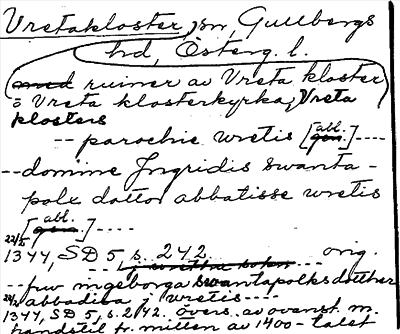 Vretakloster, sn, Gullbergs
hd, Österg. l.
med ruiner av Vreta kloster
o Vreta klosterkyrka; Vreta
klosters
-- parochie wretis [abl. gen.]----
--domine Jngridis swanta-
polx dotter abbatisse wretis
[abl. gen.]----
22/2 1344, SD 5, s. 242. orig.
--fru ingeborga swantapolksdotther
abbadissa j wretis----
22/2 1344, SD 5, s. 242. övers. av ovanst. m.
handstil fr. mitten av 1400-talet